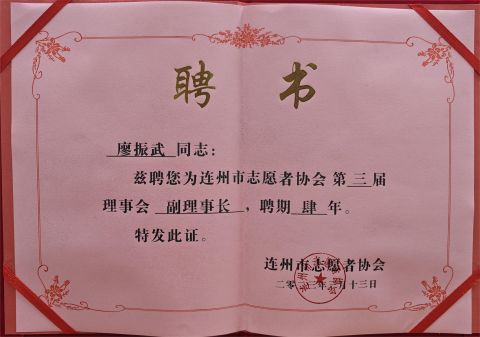 聘书
廖振武 同志：
兹聘您为连州市志愿者协会第三届
理事会 副理事长，聘期 肆 年。
特发此证。
连州市志愿者协会
二〇 三年 十三日